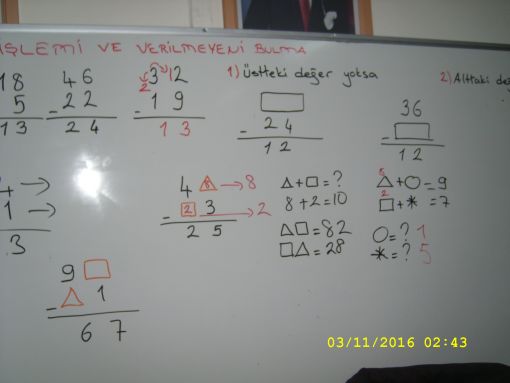 İŞLEMİ VE VERİLMEYENİ BULMA
18
5
13
46
- 22
24
2
312
- 19
13
1) Üstteki değer yoksa
□
- 24
12
2) Alttaki değ
36
- □
12
→
1 →
3
4 △8 → 8
- □2 3 → 2
25
△+□=?
8+2=10
△□=82
□△=28
8
△+○=9
2
□+*=7
○=? 1
*=? 5
9 □
- △ 1
67
03/11/2016 02:43